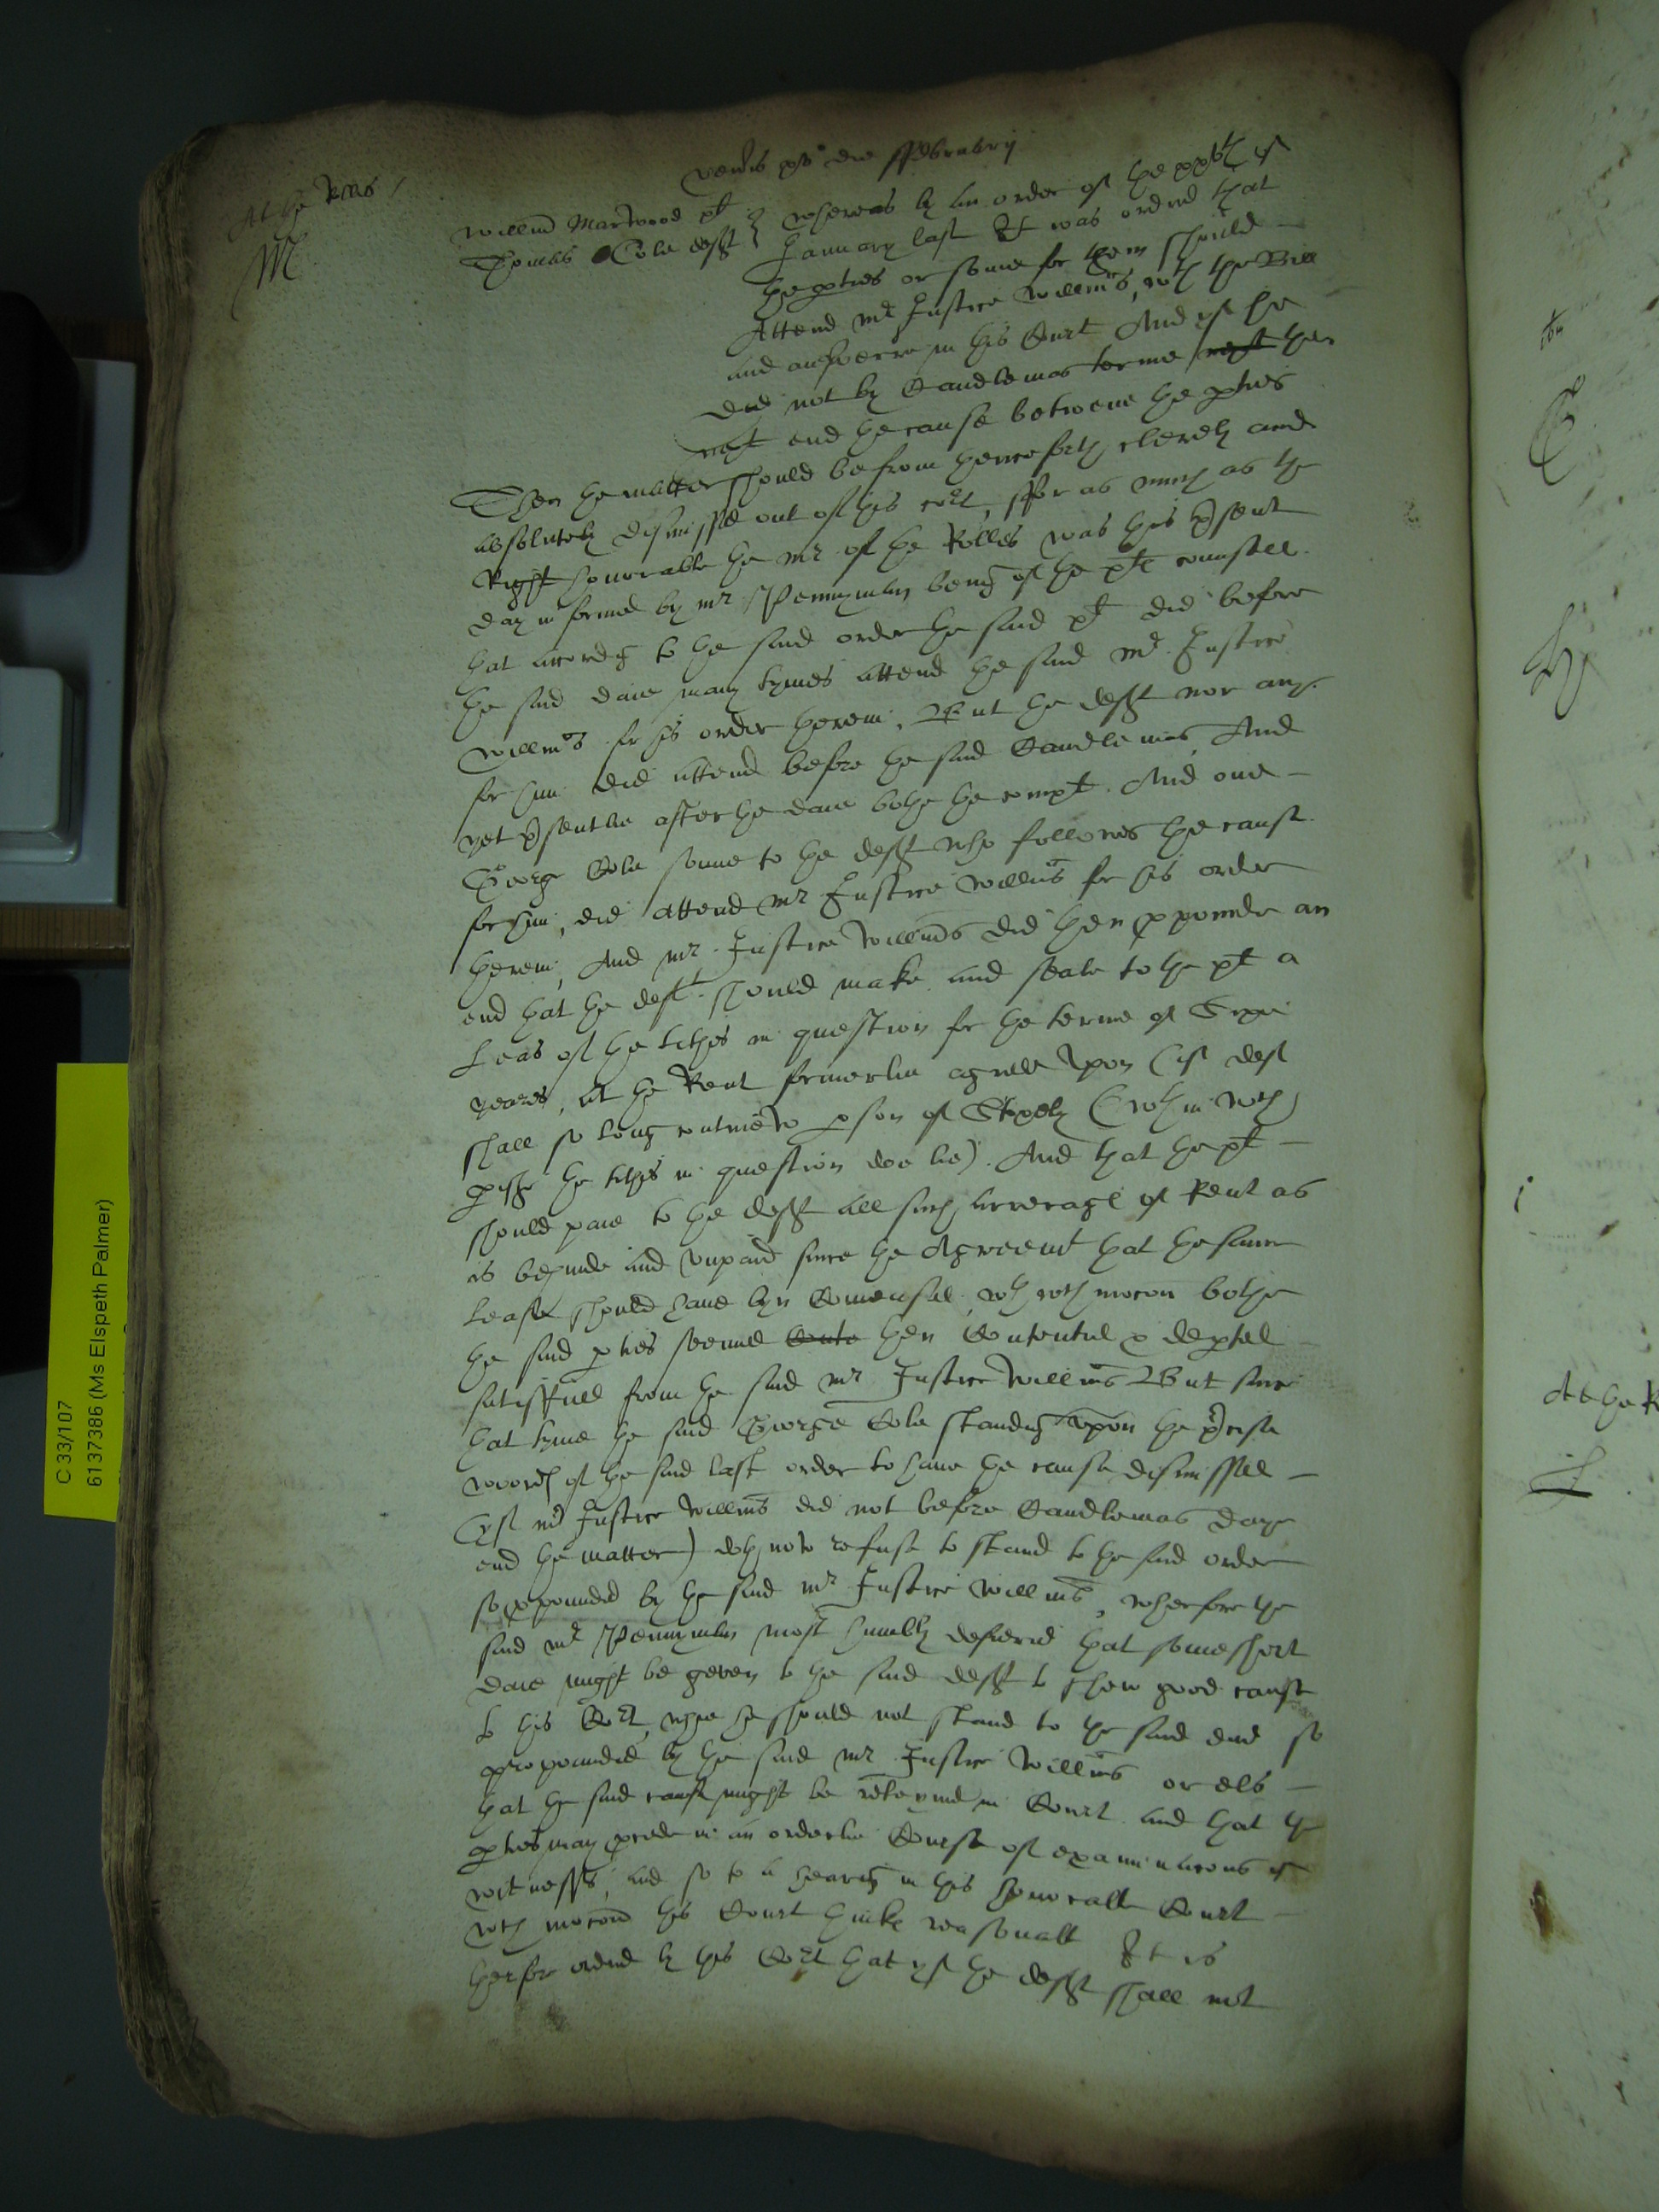 At the Rolls
M
Willm Marwood pt
Thomas Cole defft
whereas by an order of the xxvth of
January last It was ordred that
the pties or some for them should
Attend mr Justice Willms, wth the Bill
and answerre in this Court And yf he
did not by Candlemas terme next then
next end the cause betwene the pties
Then the matter should be from henceforth clerely and
absolutely dismissed out of this cort, ffor as much as the
Right honorable the mr of the Rolles was this psent
day informed by mr Pennyman being of the ptes counsell
that accordg to the said order the said pt did before
the said daie many tymes attend the said mr Justice
Willms for his order herein, But the defft nor any
for him did attend before the said Candlemas, And
yet psentlie after the daie bothe the compt. And one
George Cole sonne to the defft who followes the cause
for him, did attend mr Justice Willms for his order
herein, And mr Justice Willms did then ppounde an
end that the deft should make and seale to the pt a
Leas of the tithes in question for the terme of
yeares, at the Rent formerlie agreed upon (if deft
shall so long continew pson of (wthin wch
pishe the tithes in question doe lie). And that the pt
should paie to the defft all such arrerage of Rent as
is behinde and unpaid since the Agreemt that the same
lease should have byn Comensed, wth wch mocon bothe
the said pties seemed Conte then Contented & depted
satisfied from the said mr Justice Willms But since
that tyme the said George Cole standing upon the pcise
words of the said last order to have the cause dismissed
(yf mr Justice Willms did not before Candlemas daye
end the matter) doth now refuse to stand to the said order
so ppounded by the said mr Justice Willms, wherefore the
said mr Pennyman most humbly desiered that some short
daie might be geven to the said defft to shew good cause
to this Cort, whie he should not stand to the said end so
propounded by the said mr Justice Willms or els
that the said cause might be reteyned in Court and that the
pties may procede in an orderlie Course of examinacons of
witnesses, and so to a hearing in this honorable Court
wch mocon this Court thinke reasonable It is
therfore ordred by this Cort that yf the defft shall not
At the R
C 33/107
6137386 (Ms Elspeth Palmer)